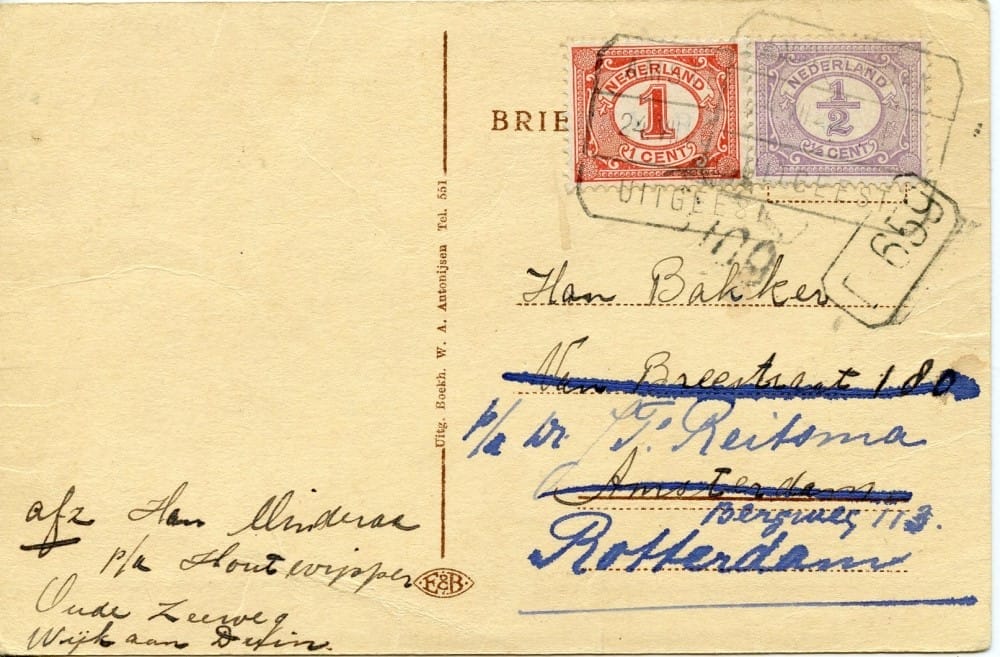 BRIE
NEDERLAND
1
1 CENT
NEDERLAND
½
½ CENT
24 VII
UITGEEST
659
Han Bakker
Van Breestraat 180
p/a Dr. T. Reitsma
Amsterdam
Bergweg 113.
Rotterdam
Uitg. Boekh. W. A. Antonijsen Tel. 551
E&B
afz Han Minderaa
p/a Houtwipper
Oude Zeeweg
Wijk aan Duin.